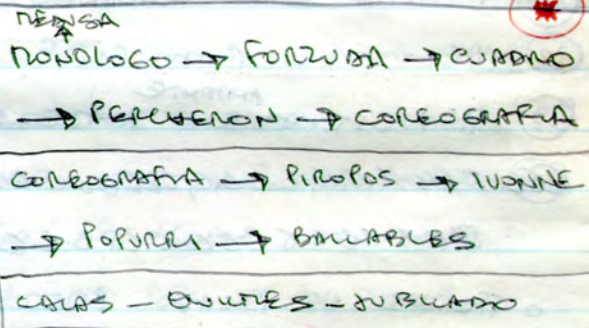 MENSA
MONOLOGO → FORZUDA → CUADRO
→ PERCHERON → COREOGRAFIA
COREOGRAFIA → PIROPOS → IVONNE
→ POPURRI → BAILABLES
CALAS - QUILTES - JUBILADO